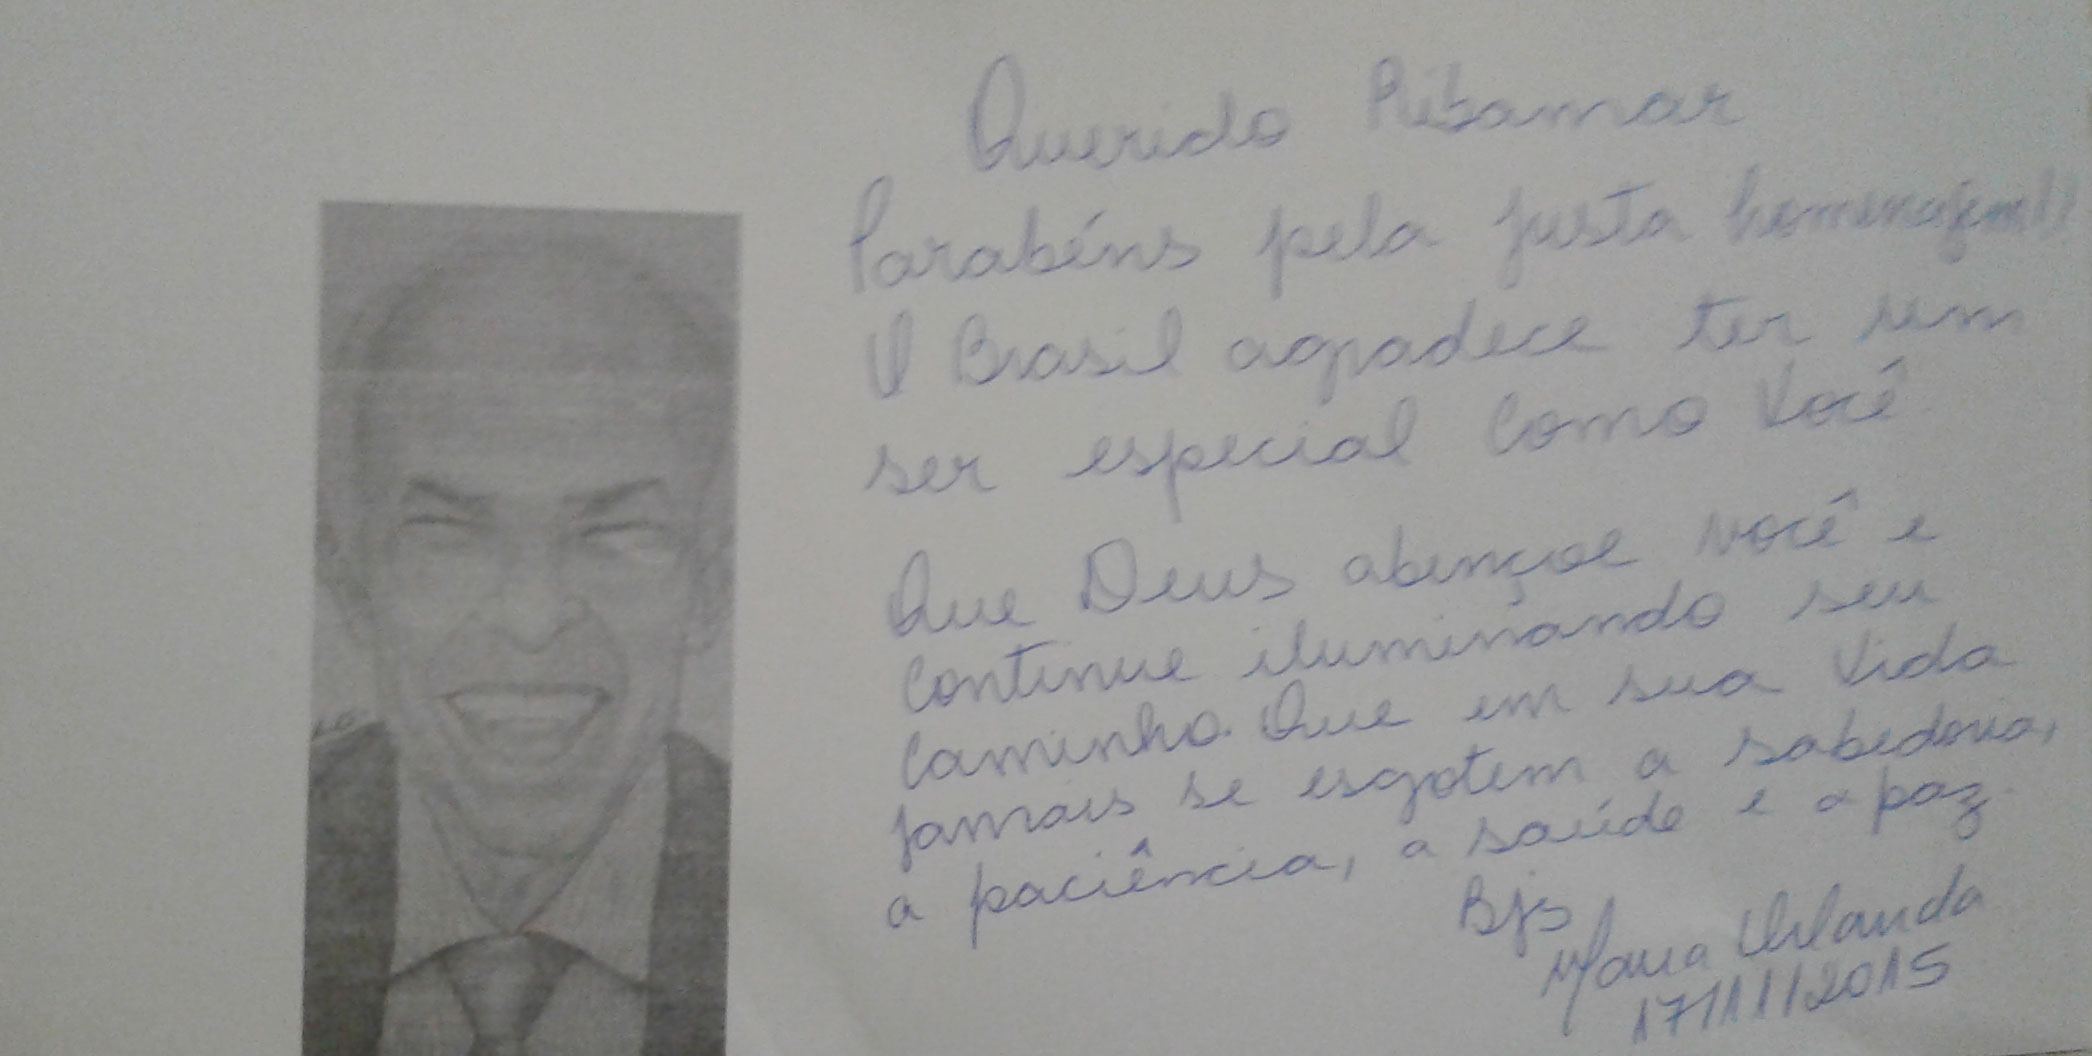 Querido Ribamar
Parabéns pela justa homenagem!!
O Brasil agradece ter um
ser especial como você
Que Deus abençoe você e
continue iluminando seu
caminho. Que em sua vida
jamais se esgotem a sabedoria,
a paciência, a saúde e a paz.
Bjs
Maria
17/11/2015